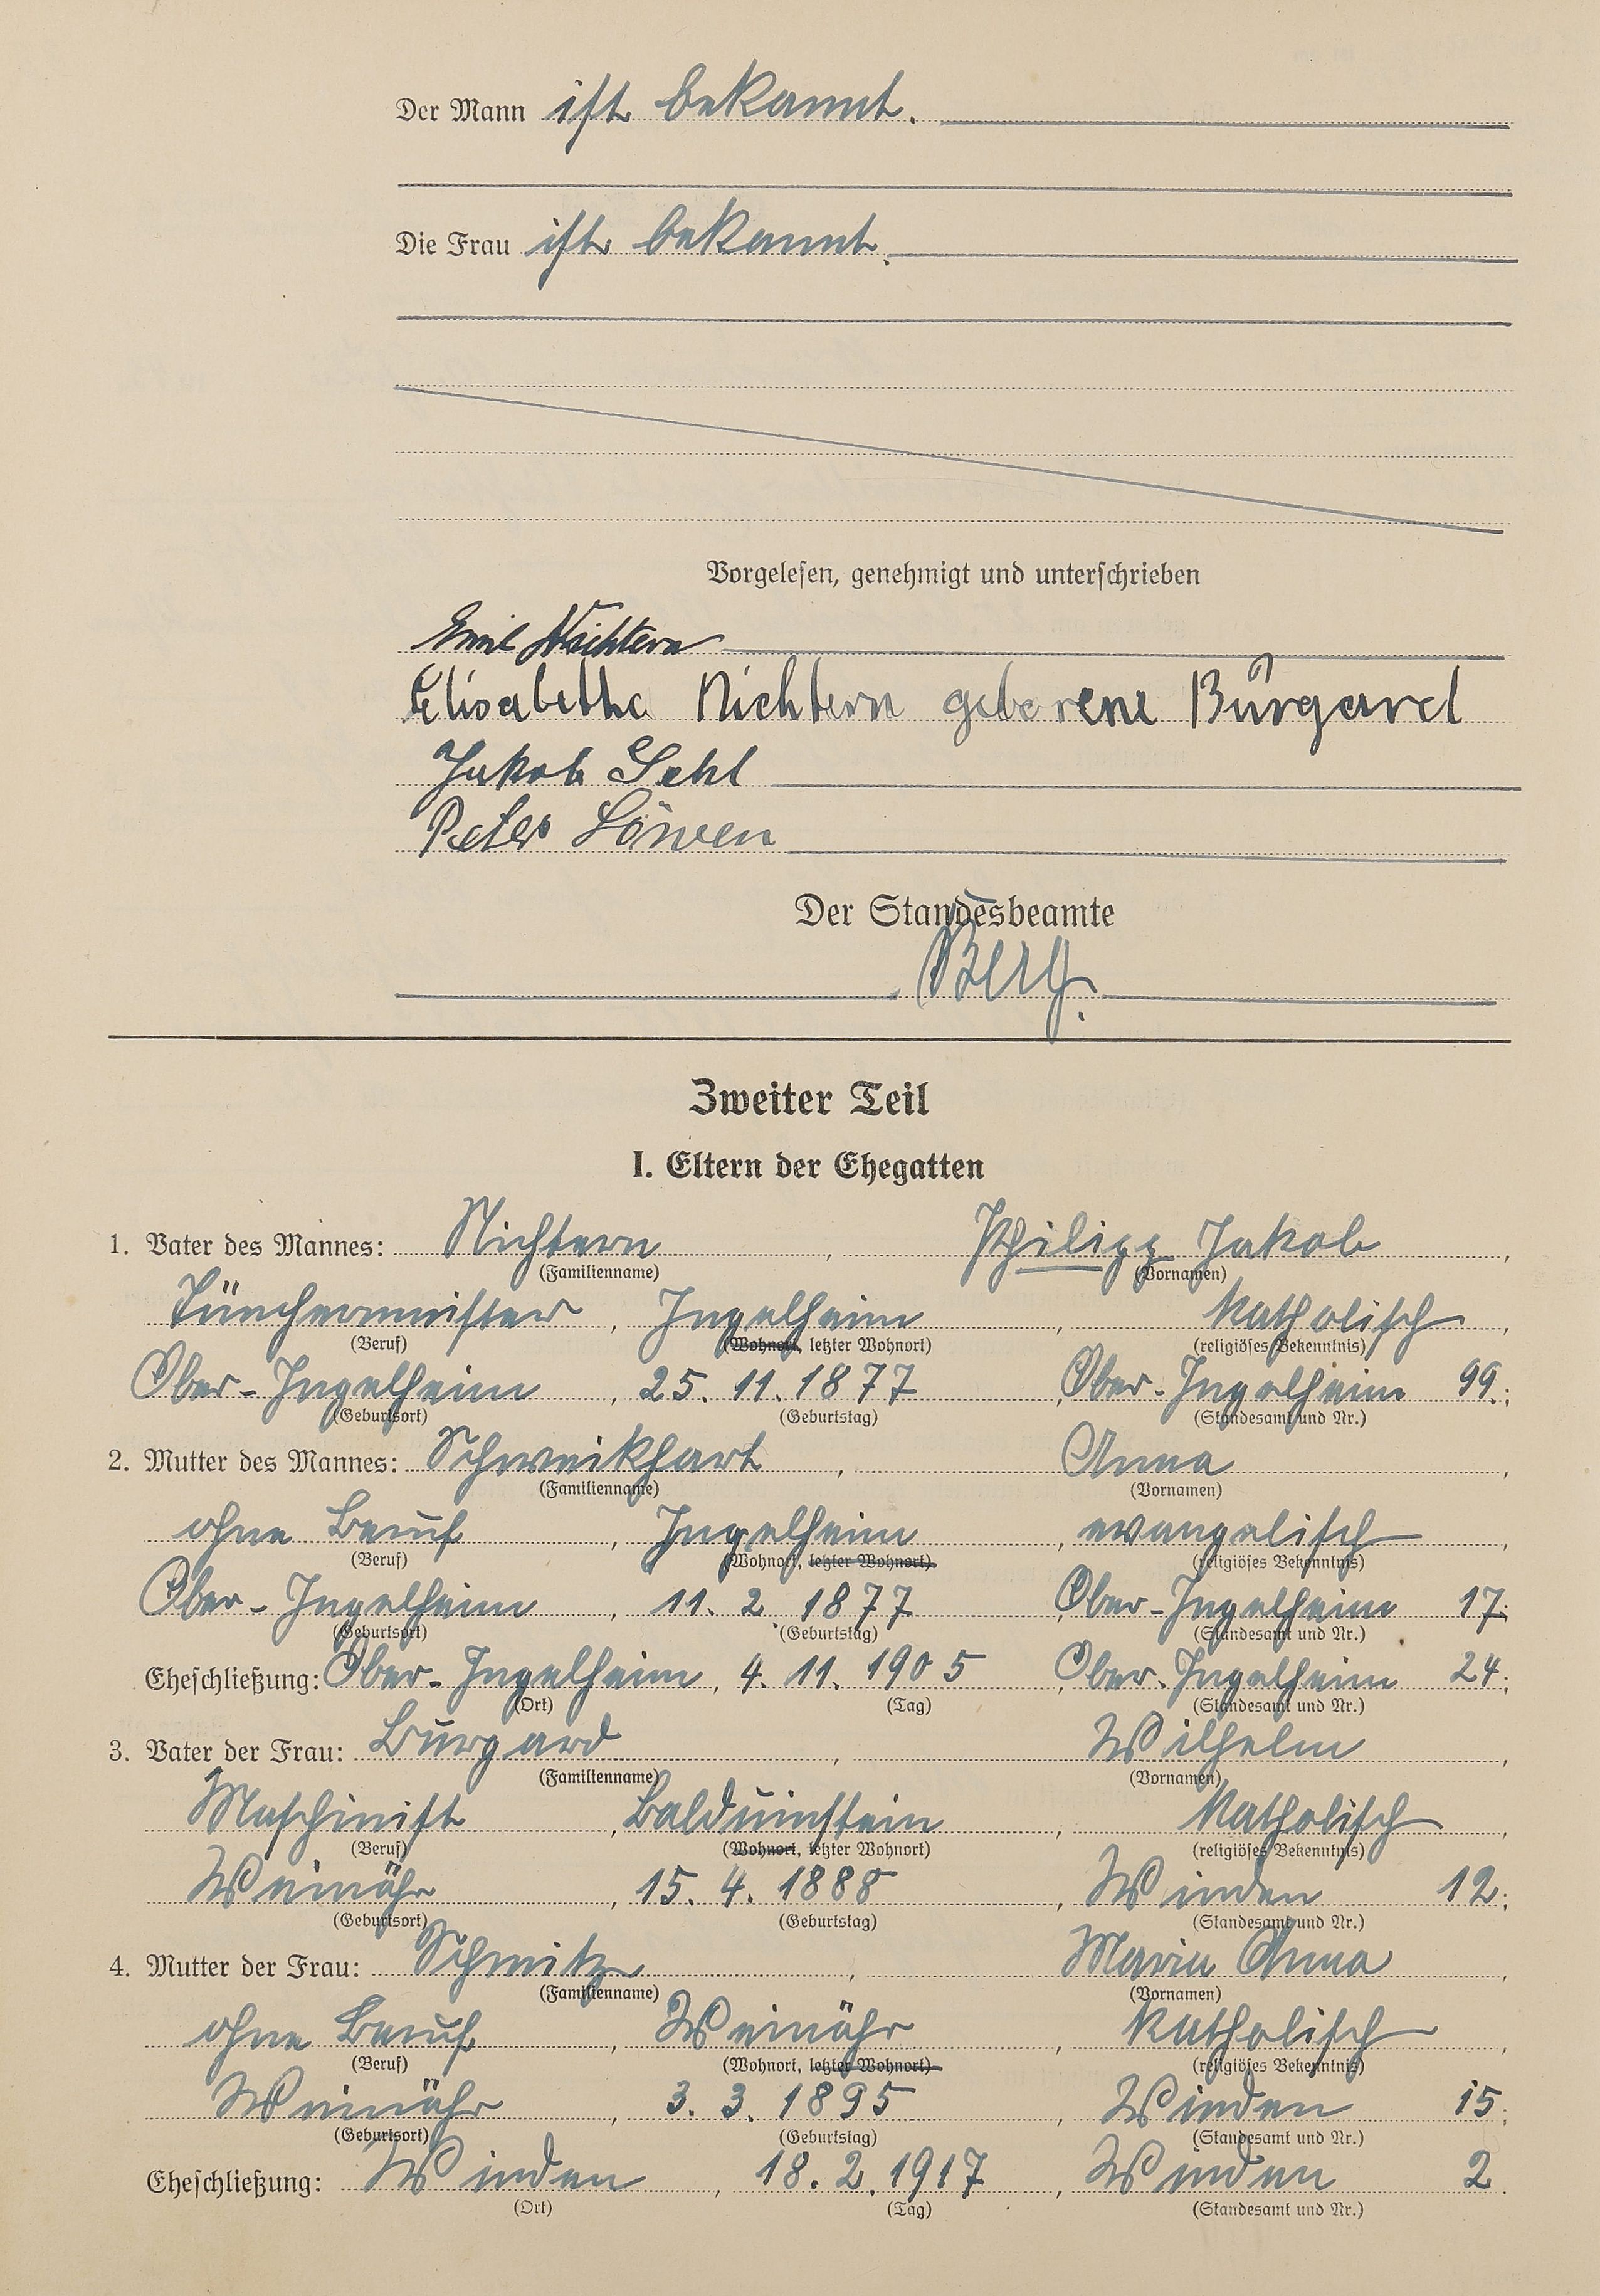 Der Mann ist bekannt.
Die Frau ist bekannt.
Vorgelesen, genehmigt und unterschrieben
Emil Nichtern
Elisabetha Nichtern geborene Burgard
Jakob Sehl
Peter Löwen
Der Standesbeamte
Berg.
Zweiter Teil
I. Eltern der Ehegatten
1. Vater des Mannes: Nichtern, Philipp Jakob,
(Familienname) (Vornamen)
Tünchermeister, Ingelheim, katholisch,
(Beruf) (Wohnort, letzter Wohnort) (religiöses Bekenntnis)
Ober-Ingelheim, 25. 11. 1877, Ober-Ingelheim 99;
(Geburtsort) (Geburtstag) (Standesamt und Nr.)
2. Mutter des Mannes: Schweikhart, Anna,
(Familienname) (Vornamen)
ohne Beruf, Ingelheim, evangelisch,
(Beruf) (Wohnort, letzter Wohnort) (religiöses Bekenntnis)
Ober-Ingelheim, 11. 2. 1877, Ober-Ingelheim 17;
(Geburtsort) (Geburtstag) (Standesamt und Nr.)
Eheschließung: Ober-Ingelheim, 4. 11. 1905, Ober-Ingelheim 24;
(Ort) (Tag) (Standesamt und Nr.)
3. Vater der Frau: Burgard, Wilhelm,
(Familienname) (Vornamen)
Maschinist, Balduinstein, katholisch,
(Beruf) (Wohnort, letzter Wohnort) (religiöses Bekenntnis)
Weinähr, 15. 4. 1888, Winden 12;
(Geburtsort) (Geburtstag) (Standesamt und Nr.)
4. Mutter der Frau: Schmitz, Maria Anna,
(Familienname) (Vornamen)
ohne Beruf, Weinähr, katholisch,
(Beruf) (Wohnort, letzter Wohnort) (religiöses Bekenntnis)
Weinähr, 3. 3. 1895, Winden 15;
(Geburtsort) (Geburtstag) (Standesamt und Nr.)
Eheschließung: Winden, 18. 2. 1917, Winden 2.
(Ort) (Tag) (Standesamt und Nr.)